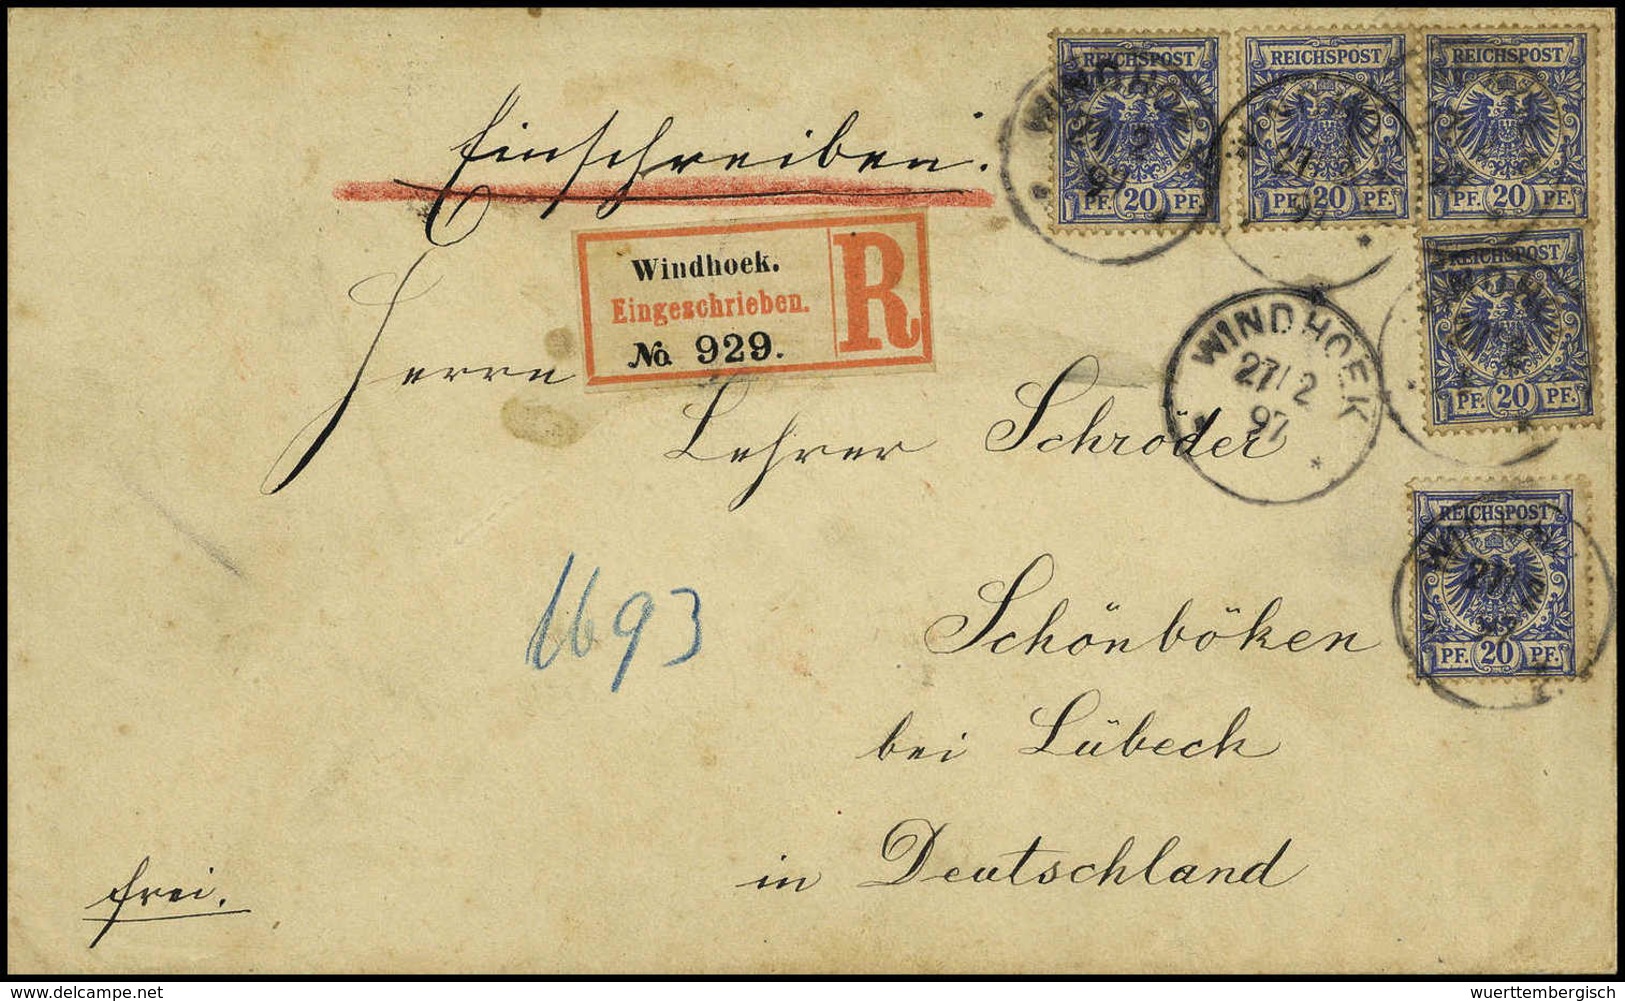 Einschreiben.
REICHSPOST
PF. 20 PF.
REICHSPOST
PF. 20 PF.
REICHSPOST
PF. 20 PF.
REICHSPOST
PF. 20 PF.
REICHSPOST
PF. 20 PF.
Windhoek.
Eingeschrieben.
No 929.
R
WINDHOEK
27/2
97
Herrn
Lehrer Schröder
1693
Schönböken
bei Lübeck
in Deutschland
frei.
delcampe.net
wuerttembergisch